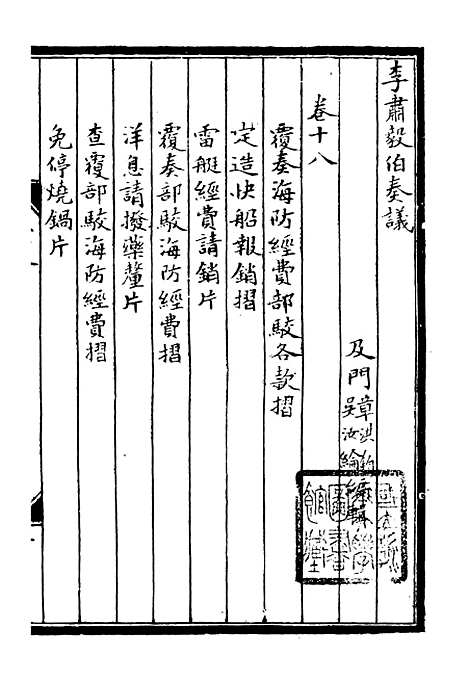 李肅毅伯奏議
及門章洪鈞吳汝綸編輯
卷十八
覆奏海防經費部駮各款摺
定造快船報銷摺
雷艇經費請銷片
覆奏部駮海防經費摺
洋息請撥藥釐片
查覆部駮海防經費摺
免停燒鍋片